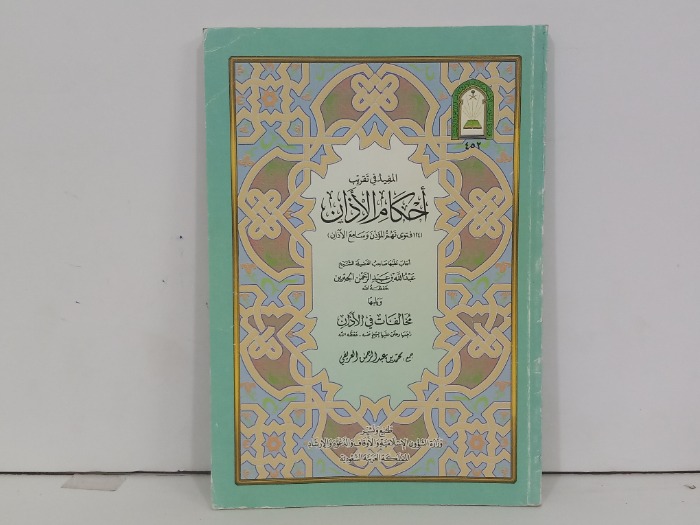 ٤٥٢
المفيد في تقريب
أحكام الأذان
(١١٤ فتوى تهم المؤذن وسامع الأذان)
أجاب عليها صاحب الفضيلة الشيخ
عبد الله بن عبد الرحمن الجبرين
حفظه الله
ويليها
مخالفات في الأذان
الشيخ نفسه - حفظه الله
محمد بن عبد الرحمن العريفي
طبع ونشر
وزارة الشؤون الإسلامية والأوقاف والدعوة والإرشاد
المملكة العربية السعودية